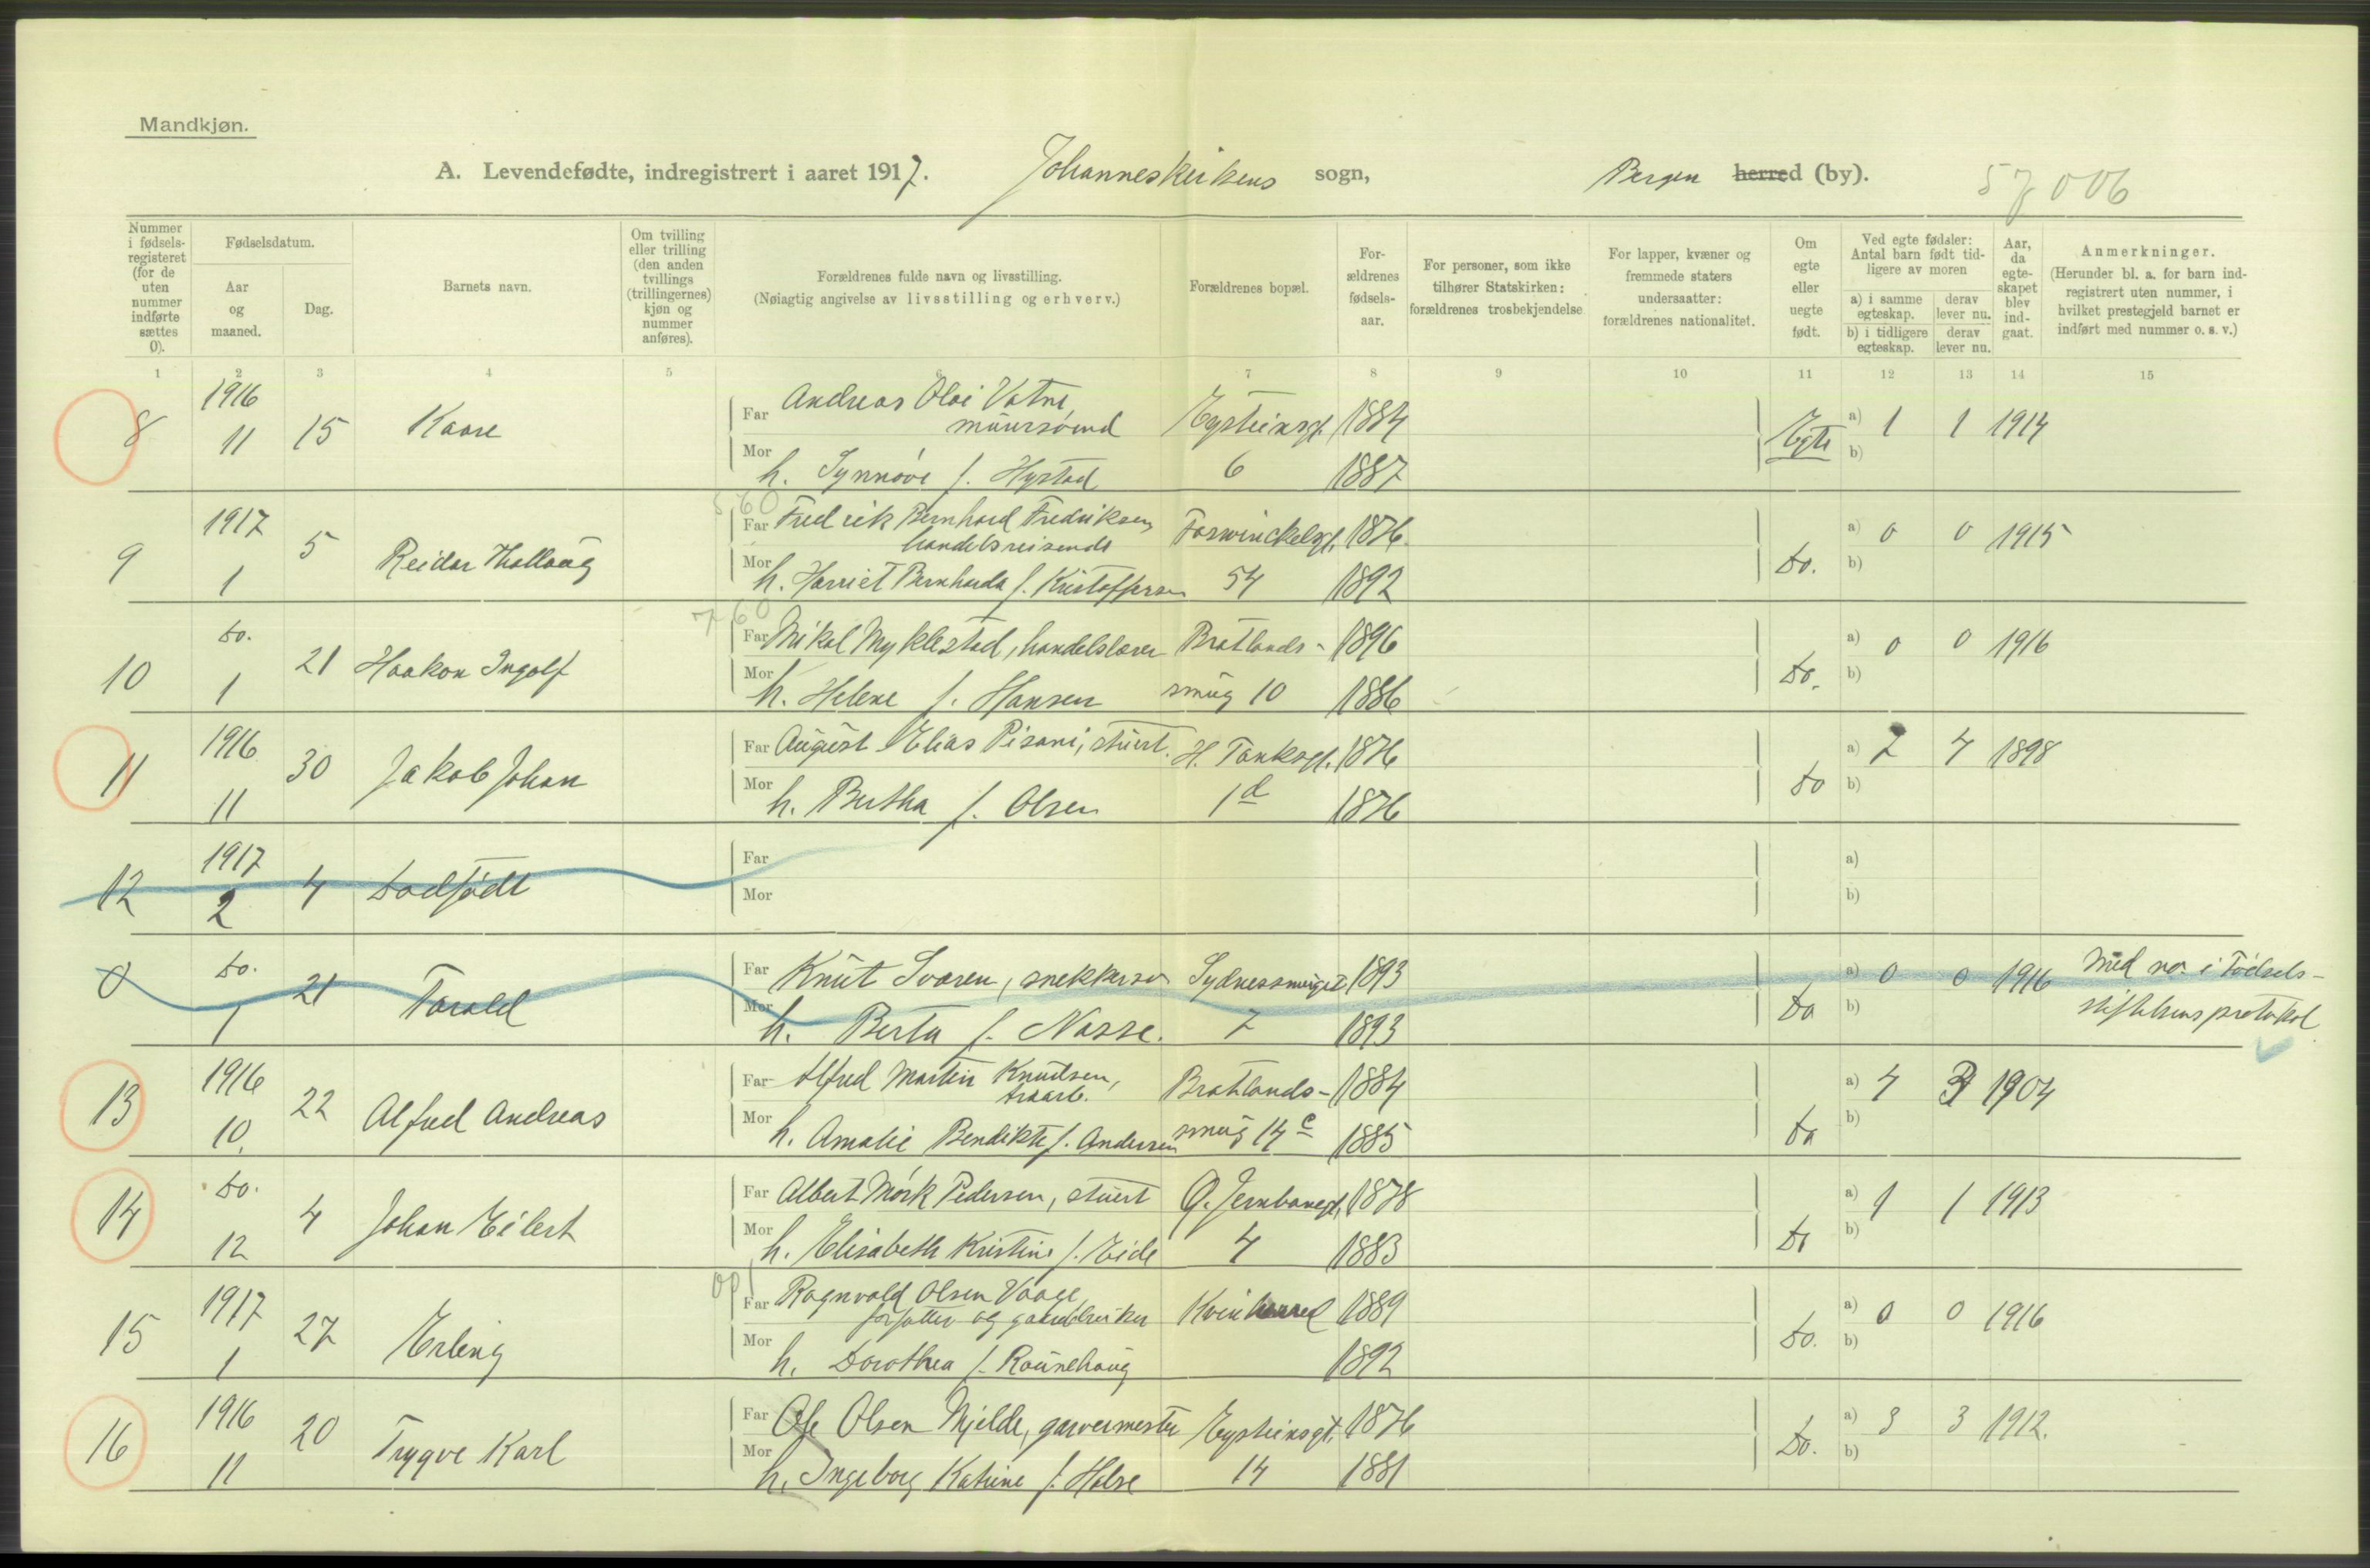 Mandkjøn.
A. Levendefødte, indregistrert i aaret 1917. Johanneskirkens sogn, Bergen herred (by). 57006
Nummer i fødsels-registeret (for de uten nummer indførte sættes 0).
Fødselsdatum.
Aar og maaned.
Dag.
Barnets navn.
Om tvilling eller trilling (den anden tvillings (trillingernes) kjøn og nummer anføres).
Forældrenes fulde navn og livsstilling. (Nøiagtig angivelse av livsstilling og erhverv.)
Forældrenes bopæl.
For-ældrenes fødsels-aar.
For personer, som ikke tilhører Statskirken: forældrenes trosbekjendelse
For lapper, kvæner og fremmede staters undersaatter: forældrenes nationalitet.
Om egte eller uegte født.
Ved egte fødsler: Antal barn født tid-ligere av moren
a) i samme egteskap. derav lever nu.
b) i tidligere egteskap. derav lever nu.
Aar, da egte-skapet blev ind-gaat.
Anmerkninger. (Herunder bl. a. for barn ind-registrert uten nummer, i hvilket prestegjeld barnet er indført med nummer o. s. v.)
1 2 3 4 5 6 7 8 9 10 11 12 13 14 15
8 1916 11 15 Kaare
Far Andreas Olai Vatne, muursvend Eysteinsgt. 1884
Mor h. Synnøve f. Hystad 6 1887
Egte a) 1 1 1914
b)
9 1917 1 5 Reidar Thallaug
Far Fredrik Bernhard Fredriksen, handelsreisende Foswinckelsgt. 1876.
Mor h. Harriet Bernharda f. Kristoffersen 54 1892
Do. a) 0 0 1915
b)
760
10 Do. 1 21 Haakon Ingolf
Far Mikal Myklestad, handelslærer Bratlands- 1896
Mor h. Helene f. Hansen smug 10 1886
Do. a) 0 0 1916
b)
11 1916 11 30 Jakob Johan
Far August Elias Pisani, stuert. H. Tanksgt. 1876
Mor h. Bertha f. Olsen 1d 1876
Do a) 7 4 1898
b)
12 1917 2 4 Dødfødt
Far
Mor
a)
b)
0 Do. 1 21 Torald
Far Knut Svaren, snekkersv Sydnessmuget 1893
Mor h. Berta f. Nasse. 7 1893
Do a) 0 0 1916 Med no. i Fødsels-
b) stiftelsens protokol
13 1916 10. 22 Alfred Andreas
Far Alfred Martin Knudsen, Bratlands- 1884
Mor h. Amalie Bendikte f. Andersen smug 14c 1885
Do a) 4 3 1904
b)
14 Do. 12 4 Johan Eilert
Far Albert Mørk Pedersen, stuert G. Jernbanegt. 1878
Mor h. Elisabeth Kristine f. Eide 4 1883
Do a) 1 1 1913
b)
15 1917 1 27 Erling
Far Ragnvald Olsen Vaage, forfatter og gaardbruker Kvinherred 1889
Mor h. Dorothea f. Raunehaug 1892
Do. a) 0 0 1916
b)
16 1916 11 20 Trygve Karl
Far Ole Olsen Mjelde, garvermester Eysteinsgt. 1876
Mor h. Ingeborg Katrine f. Holse 14 1881
Do. a) 3 3 1912.
b)